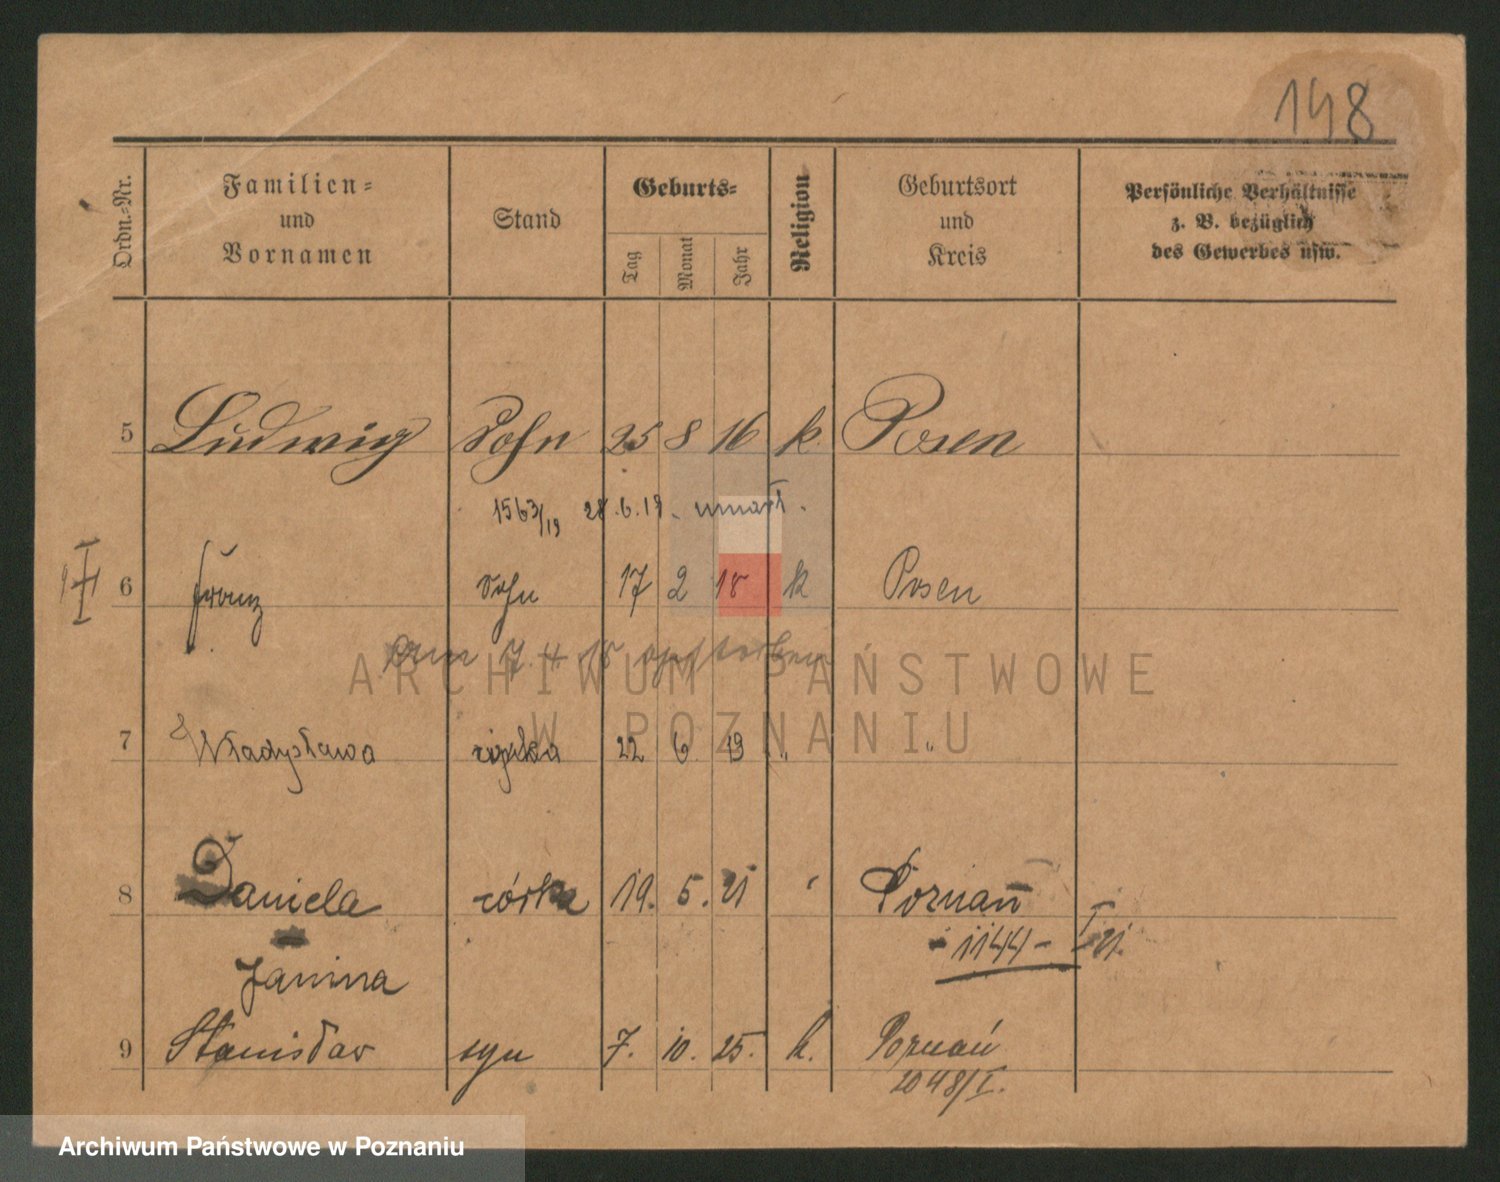 148
Ordn.-Nr.
Familien-
und
Vornamen
Stand
Geburts-
Tag
Monat
Jahr
Religion
Geburtsort
und
Kreis
Persönliche Verhältnisse
z. B. bezüglich
des Gewerbes usw.
5 Ludwig Sohn 25 8 16 k. Posen
1563/19 28.6.19. umarł.
6 Franz Sohn 17 2 18 k Posen
Am 7. 4 18 verstorben
7 Władysława córka 22 6 19 " "
8 Daniela córka 19. 5. 21 " Poznań
- 1144 - I 21.
Janina
9 Stanisław syn 7. 10. 25. k. Poznań
2048/I.
ARCHIWUM PAŃSTWOWE
W POZNANIU
Archiwum Państwowe w Poznaniu